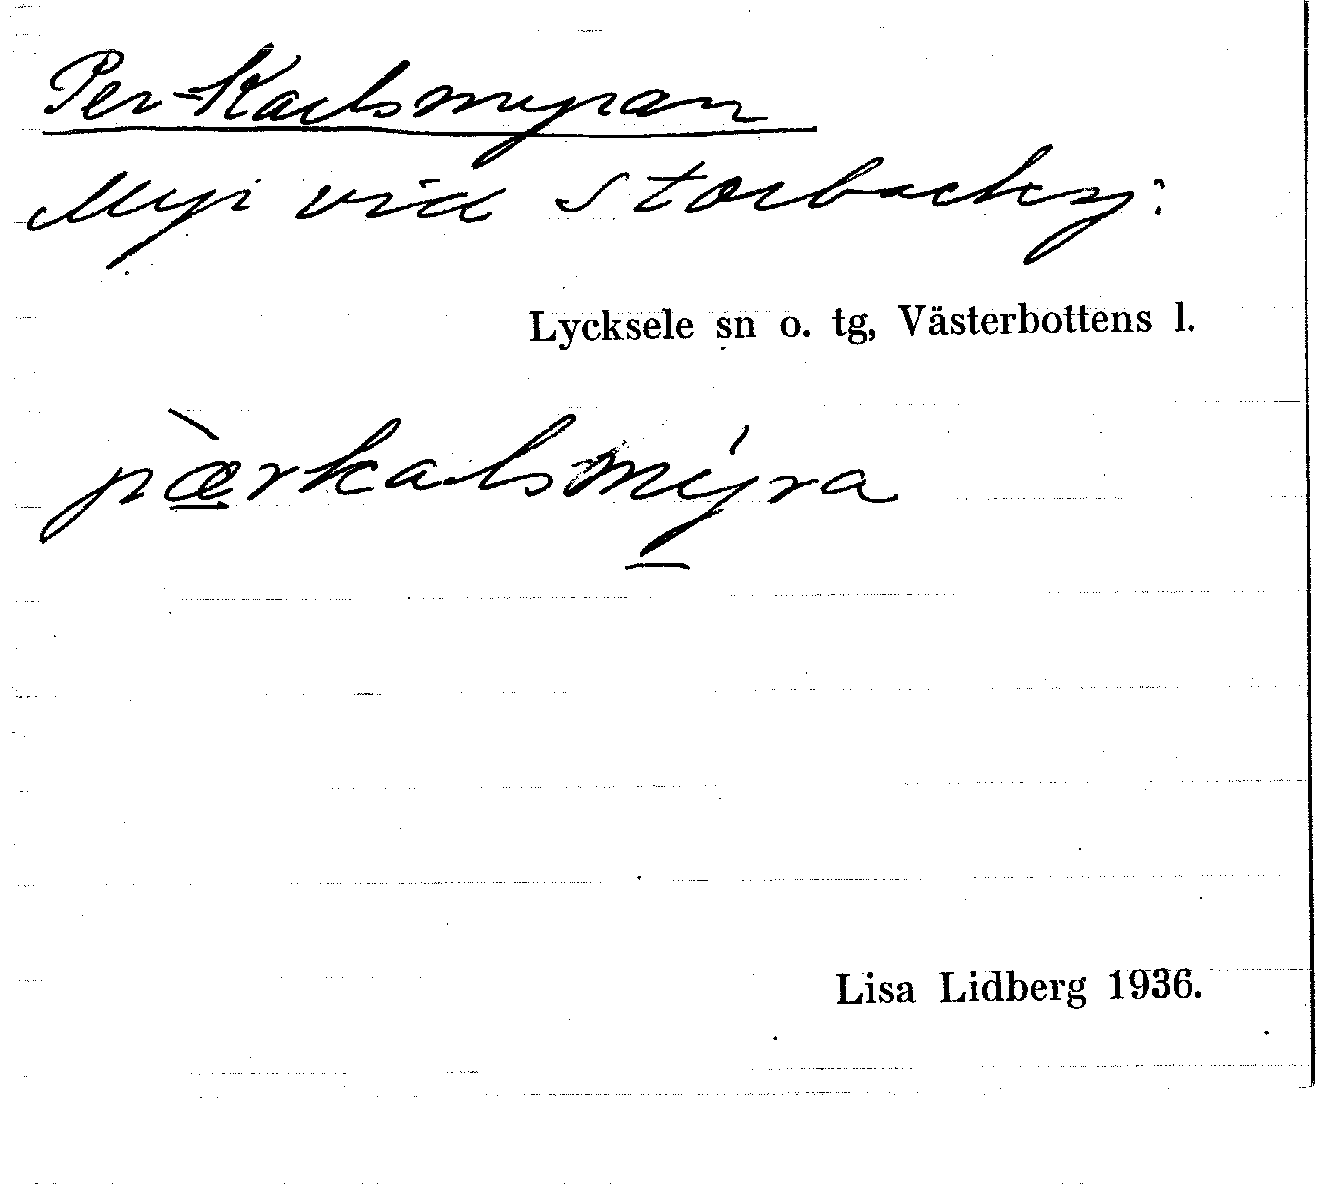 Per-Karlsmyran
Myr vid Storbacken:
Lycksele sn o. tg, Västerbottens l.
pæ̀rkalsmýra
Lisa Lidberg 1936.